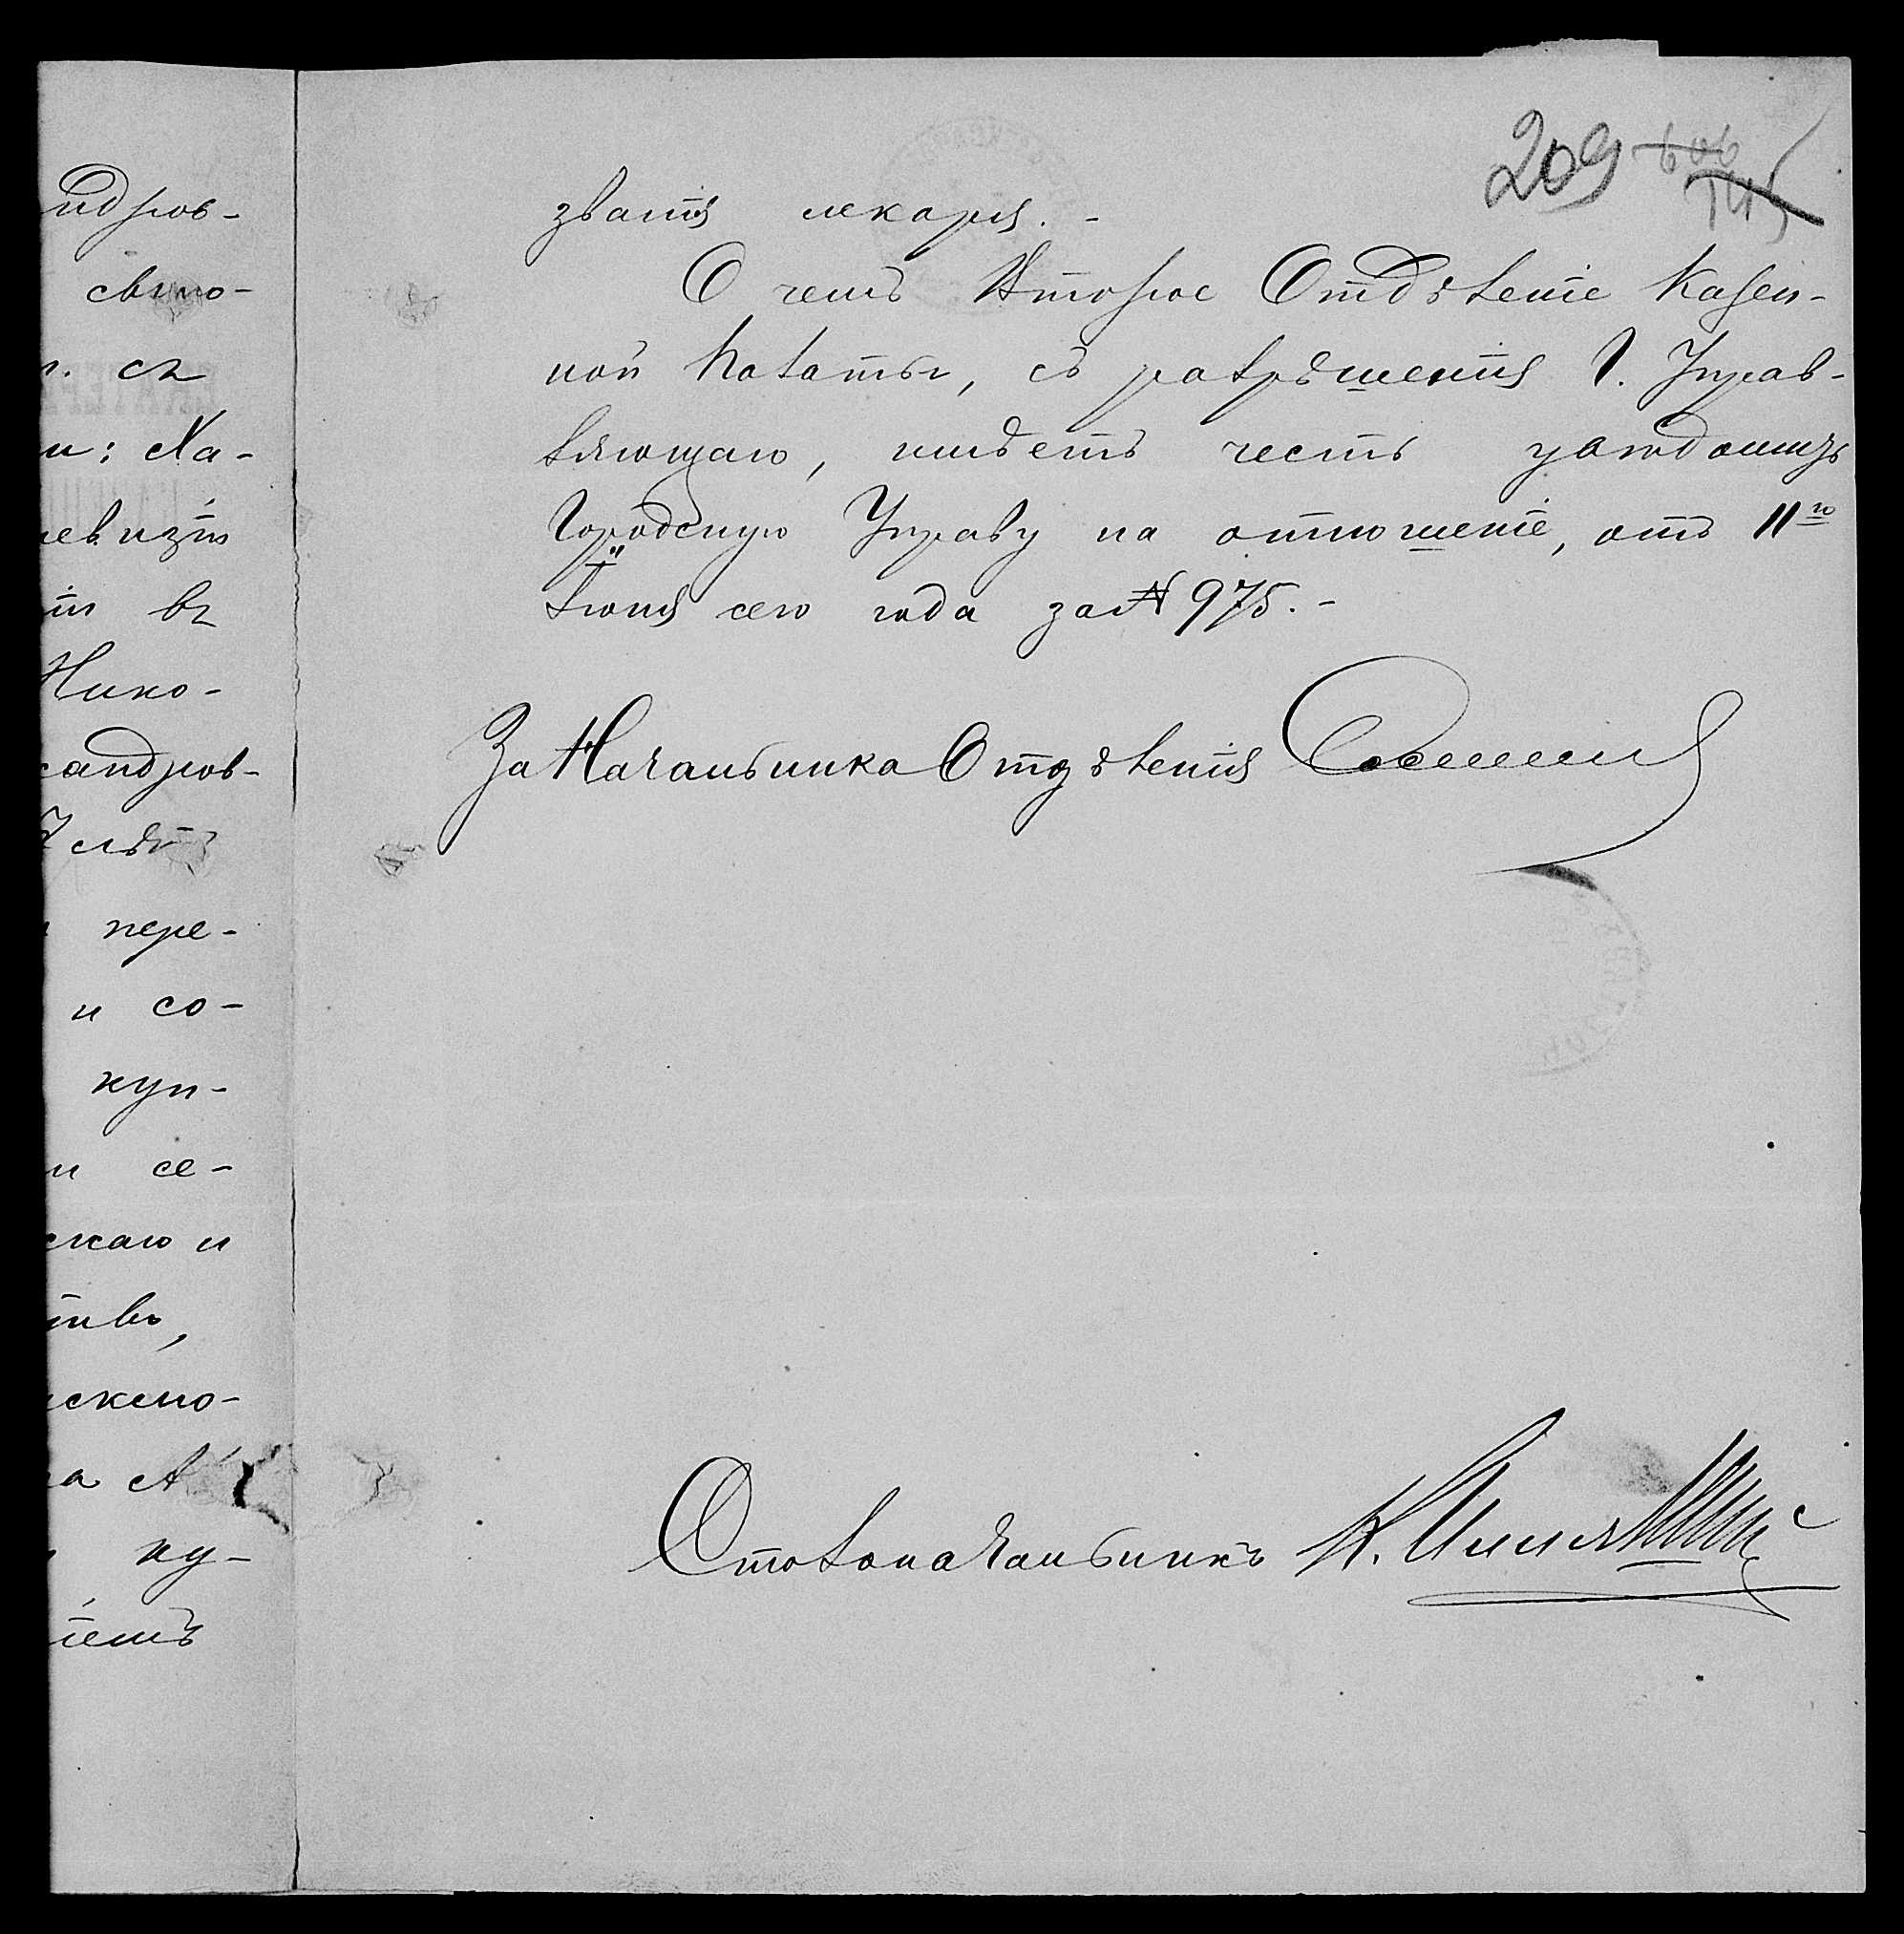 209 606
званія лекаря. -
О чемъ Второе Отдѣленіе Казен-
ной Палаты, съ разрѣшенія Г. Управ-
ляющаго, имѣетъ честь увѣдомить
Городскую Управу на отношеніе, отъ 11го
Іюня сего года за № 975. -
За Начальника Отдѣленія
Столоначальникъ К.
ндров-
свѣто-
съ
и: Ха-
ревизіи
въ
Нико-
сандров-
7 лѣтъ
пере-
и со-
куп-
се-
скаго и
твѣ,
а А
ку-
темъ